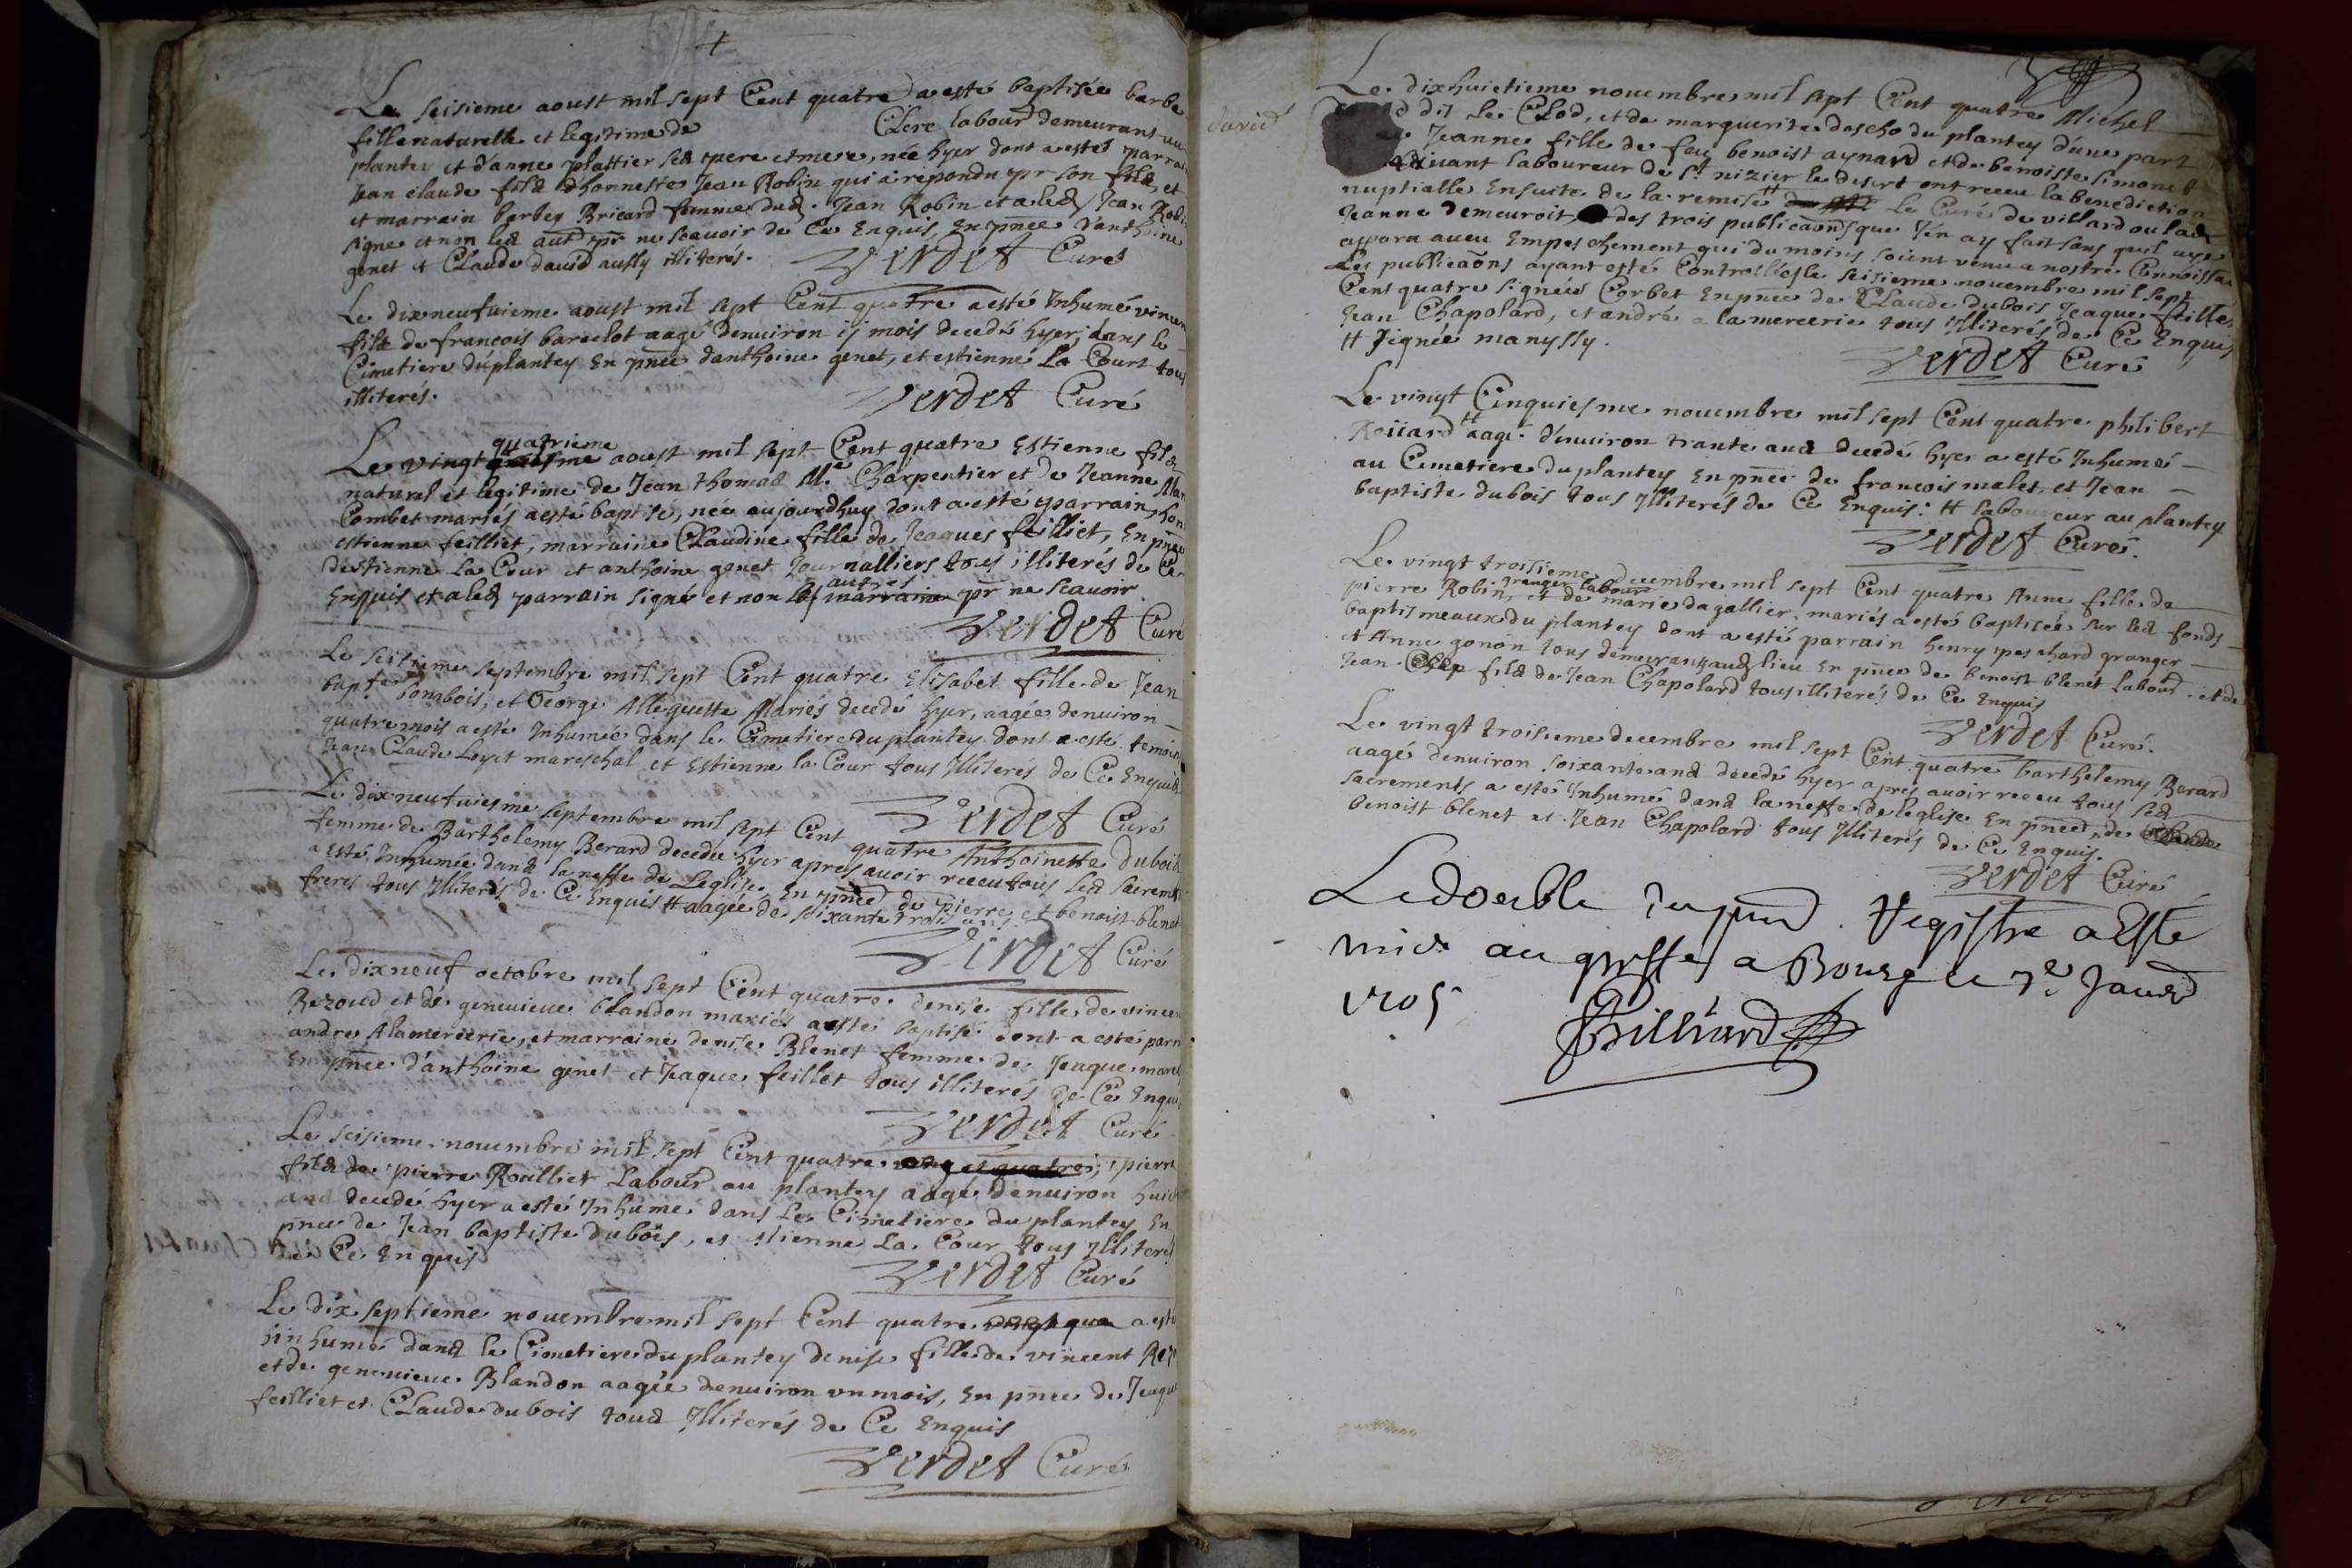 Le seisieme aoust mil sept Cent quatre a esté baptisée barbe
fille naturelle et legitime de Clere labour demeurant au
plantey et d'anne plattier sea pere et mere, née hyer dont a esté parrai
Jean claude fila d'honneste Jean Robin qui a repondu pr son fila, et
et marrain barbey Bricard femme dud. Jean Robin et a led Jean Robi
signe et non lea aut pr ne scavoir de Ce Enquis, En pnce d'anthoine
genet et Claude david aussy illiterés. Verdet Curé
Le dixneufuieme aoust mil sept Cent quatre a esté Inhumé vincen
fila de francois barcelot aagé denuiron 15 mois decedé hyer, dans le
Cimetiere du plantey En pnce danthoine genet, et estienne La Court tous
illiterés. Verdet Curé
quatrieme
Le vingt aoust mil sept Cent quatre Estienne fila
naturel et legitime de Jean thomaa M.e Charpentier et de Jeanne Mar
Combet mariés a esté baptisé, née aujourdhuy dont a esté parrain, hon
estienne feilliet, marraine Claudine fille de Jeaques feilliet, En pnce
destienne La Cour et anthoine genet Journalliers tous illiterés de Ce
autres
Enquis et a led parrain signé et non les marraine pr ne scauoir.
Verdet Curé
Le seisieme septembre mil sept Cent quatre Elisabet fille de Jean
bapte bombois, et George Alleguette Mariés decedé hyer, aagée denuiron
quatre mois a esté Inhumée dans le Cimetiere du plantey dont a esté temoin
Jean Claude Loyet mareschal et Estienne la Cour tous Illiterés de Ce Enquis
Verdet Curé
Le dixneufuiesme septembre mil sept Cent quatre Anthoinette duboia
femme de Barthelemy Berard decedée hyer apres auoir receu tous sea sacremts
a esté Inhumée dana la neffe de Leglise En pnce de pierre et benoist blenet
freres tous Illiterés de Ce Enquis # aagée de soixante trois ans
Verdet Curé
Le dixneuf octobre mil sept Cent quatre denise fille de vincen
Rezoud et de geneuieue blandon mariés a esté baptisé dont a esté parr
andre Alamercerie, et marraine denise Blenet femme de Jeaque mare
En pnce d'anthoine genet et Jeaque feillet tous illiterés de Ce Enqui
Verdet Curé
Le seisieme nouembre mil sept Cent quatre vingt quatre, pierre
fila de pierre Roulliet Labour au plantey aagé denuiron huic
ana decedé hyer a esté Inhumé dans Le Cimetiere du plantey En
pnce de Jean baptiste dubois, et stienne La Cour tous Illiteré
de Ce Enquis Verdet Curé
Le dix septieme nouembre mil sept Cent quatre vingt qua a esté
inhumé dana le Cimetiere du plantey denise fille de vincent Rez
et de geneuieue Blandon aagée denuiron un mois, En pnce de Jeaque
feilliet et Claude dubois toua Illiterés de Ce Enquis
Verdet Curé
david
Le dixhuietieme nouembre mil sept Cent quatre Michel
d dit le Clod, et de marguerite descho du plantey d'une part
Jeanne fille de feu benoist aynard et de benoiste simonet
viuant laboureur de st nizier le desert ont receu la benediction
nuptialle Ensuite de la remise # le Curé de villard ou lad
Jeanne demeuroit, des trois publicaons que J'en ay fait sans quil aye
apparu aucu Empeschement qui du moins soient venu a nostre Connoissa
Les publicaons ayant esté Controllées le seisieme nouembre mil sept
Cent quatre signées Corbet En pnce de Claude dubois Jeaque feillet
Jean Chapolard, et andré a la mercerie tous Illiterés de Ce Enquis
# signée manyssy. Verdet Curé
Le vingt Cinquiesme nouembre mil sept Cent quatre philibert
Roüard # aagé d'enuiron trante ana decedé hyer a esté Inhumé
au Cemetiere du plantey En pnce de francois malet, et Jean
baptiste dubois tous Illiterés de Ce Enquis: # laboureur au plantey
Verdet Curé.
Le vingt troisieme decembre mil sept Cent quatre Anne fille de
granger labour
pierre Robin, et de marie dagallier, mariés a esté baptisée sur lea fonds
baptismeaux du plantey dont a esté parrain henry peschard granger
et Anne gonon tous demeurants aud lieu En pnce de benoist blenet labour. et de
Jean Chap fila de Jean Chapolard tous illiterés de Ce Enquis
Verdet Curé.
Le vingt troisieme decembre mil sept Cent quatre barthelemy Berard
aagé denuiron soixante ana decedé hyer apres auoir receu tous sea
sacrements a esté Inhumé dana la neffe de leglise En pnce de
benoist blenet et Jean Chapolard tous Illiterés de Ce Enquis.
Verdet Curé
Ledouble du pnt Registre a Esté
mis au greffe a Bourg le 7e Janvr
1705 Brilliard